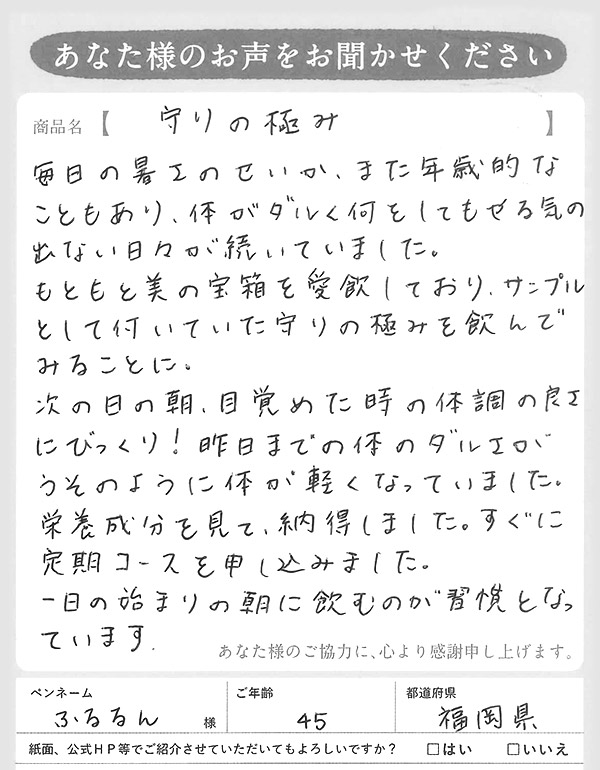 あなた様のお声をお聞かせください
商品名【 守りの極み 】
毎日の暑さのせいか、また年歳的な
こともあり、体がダルく何をしてもやる気の
出ない日々が続いていました。
もともと美の宝箱を愛飲しており、サンプル
として付いていた守りの極みを飲んで
みることに。
次の日の朝、目覚めた時の体調の良さ
にびっくり！昨日までの体のダルさが
うそのように体が軽くなっていました。
栄養成分を見て、納得しました。すぐに
定期コースを申し込みました。
一日の始まりの朝に飲むのが習慣となっ
ています.
あなた様のご協力に、心より感謝申し上げます。
ペンネーム ご年齢 都道府県
ふるるん 様 45 福岡県
紙面、公式HP等でご紹介させていただいてもよろしいですか？ □はい □いいえ